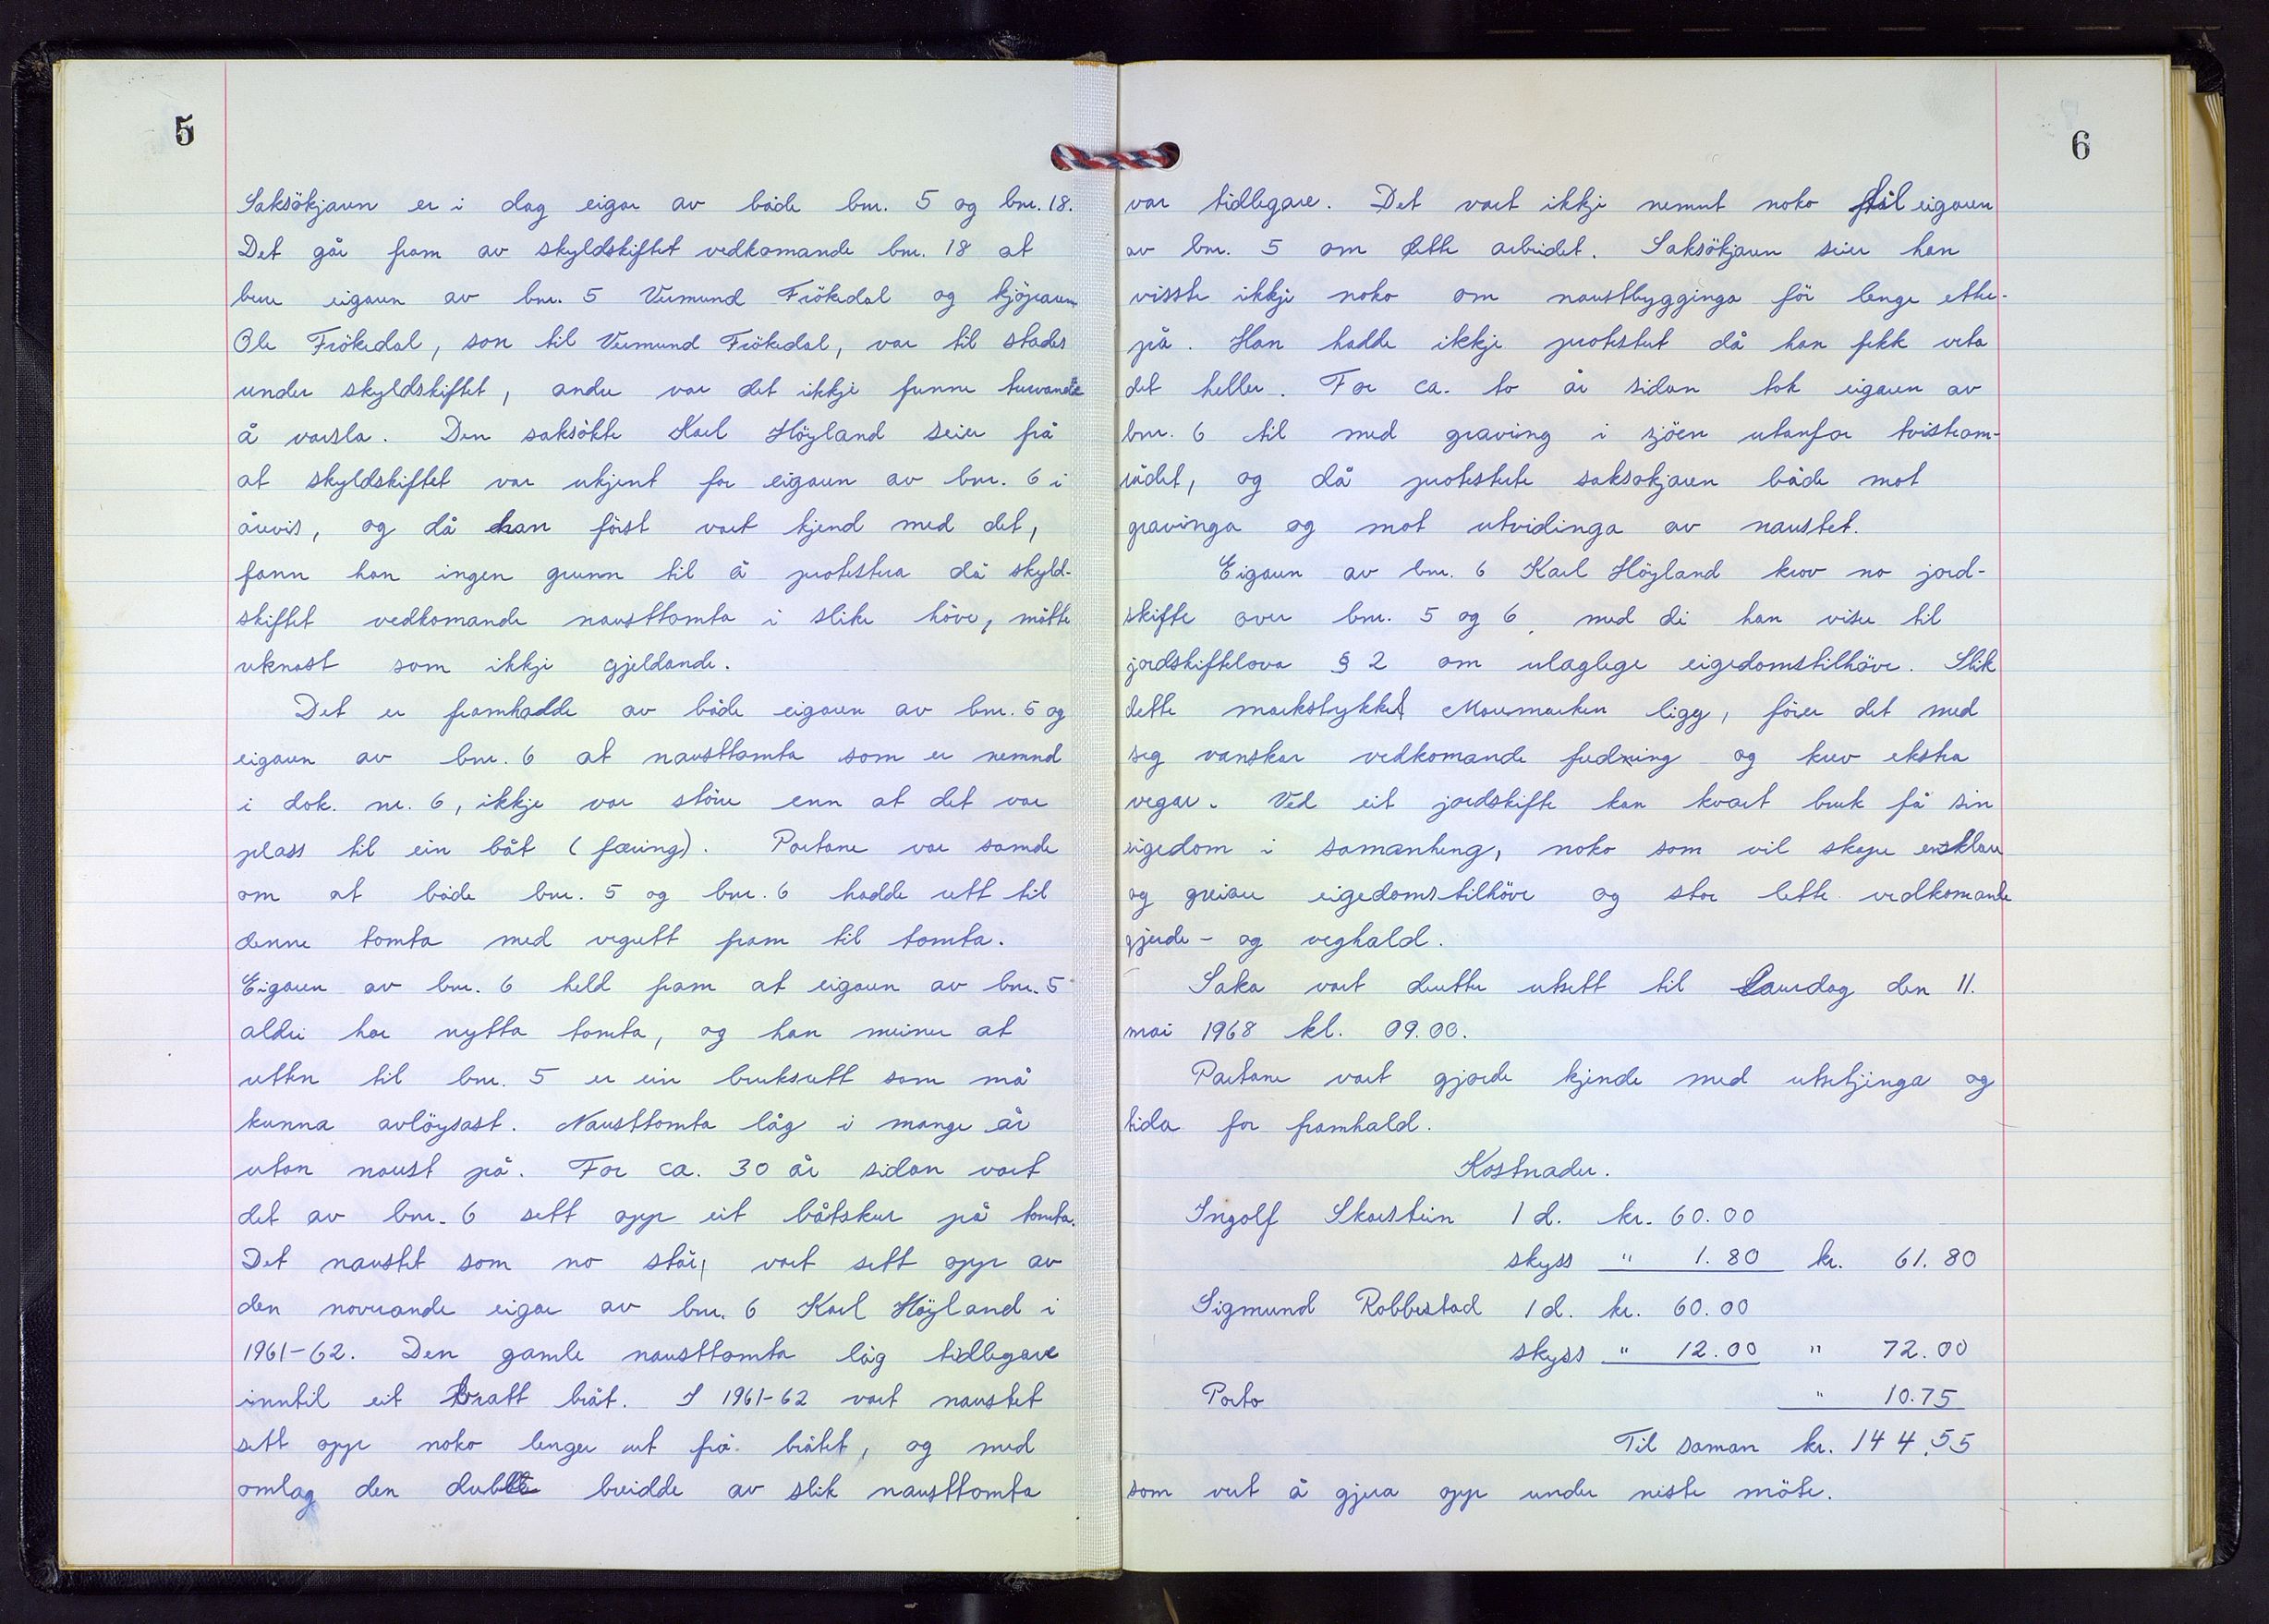 5
Saksökjaren er i dag eigar av både bnr. 5 og bnr. 18.
Det går fram av skyldskiftet vedkomande bnr. 18 at
bere eigaren av bnr. 5 Vermund Frökedal og kjöparen
Ole Frökedal, son til Vermund Frökedal, var til stades
under skyldskiftet, andre var det ikkje funne turvande
å varsla. Den saksökte Karl Höyland seier frå
at skyldskiftet var ukjent for eigaren av bnr. 6 i
årevis, og då han först vart kjend med det,
fann han ingen grunn til å protestera då skyld-
skiftet vedkomande nausttomta i slike höve, måtte
reknast som ikkje gjeldande.
Det er framhadde av både eigaren av bnr. 5 og
eigaren av bnr. 6 at nausttomta som er nemnd
i dok. nr. 6, ikkje var större enn at det var
plass til ein båt (færing). Partane var samde
om at både bnr. 5 og bnr. 6 hadde rett til
denne tomta med vegrett fram til tomta.
Eigaren av bnr. 6 held fram at eigaren av bnr. 5
aldri har nytta tomta, og han meiner at
retten til bnr. 5 er ein bruksrett som må
kunna avlöysast. Nausttomta låg i mange år
utan naust på. For ca. 30 år sidan vart
det av bnr. 6 sett opp eit båtskur på tomta.
Det naustet som no står, vart sett opp av
den noverande eigar av bnr. 6 Karl Höyland i
1961-62. Den gamle nausttomta låg tidlegare
inntil eit bratt bråt. I 1961-62 vart naustet
sett opp noko lenger ut frå bråtet, og med
omlag den dubble breidde av slik nausttomta
6
var tidlegare. Det vart ikkje nemnt noko til eigaren
av bnr. 5 om dette arbeidet. Saksökjaren seier han
visste ikkje noko om naustbygginga för lenge etter-
på. Han hadde ikkje protestert då han fekk veta
det heller. For ca. to år sidan tok eigaren av
bnr. 6 til med graving i sjöen utanfor tvisteom-
rådet, og då protesterte saksökjaren både mot
gravinga og mot utvidinga av naustet.
Eigaren av bnr. 6 Karl Höyland krev no jord-
skifte over bnr. 5 og 6, med di han viser til
jordskiftelova § 2 om ulaglege eigedomstilhöve. Slik
dette markstykket Maremarken ligg, förer det med
seg vanskar vedkomande fredning og krev ekstra
vegar. Ved eit jordskifte kan kvart bruk få sin
eigedom i samanheng, noko som vil skape enklare
og greiare eigedomstilhöve og stor lette vedkomande
gjerde- og veghald.
Saka vart deretter utsett til laurdag den 11.
mai 1968 kl. 09.00.
Partane vart gjorde kjende med utsetjinga og
tida for framhald.
Kostnader.
Ingolf Skarstein 1 d. kr. 60.00
skyss " 1.80 kr. 61.80
Sigmund Robberstad 1 d. kr. 60.00
skyss " 12.00 " 72.00
Porto " 10.75
Til saman kr. 144.55
som vert å gjera opp under neste möte.